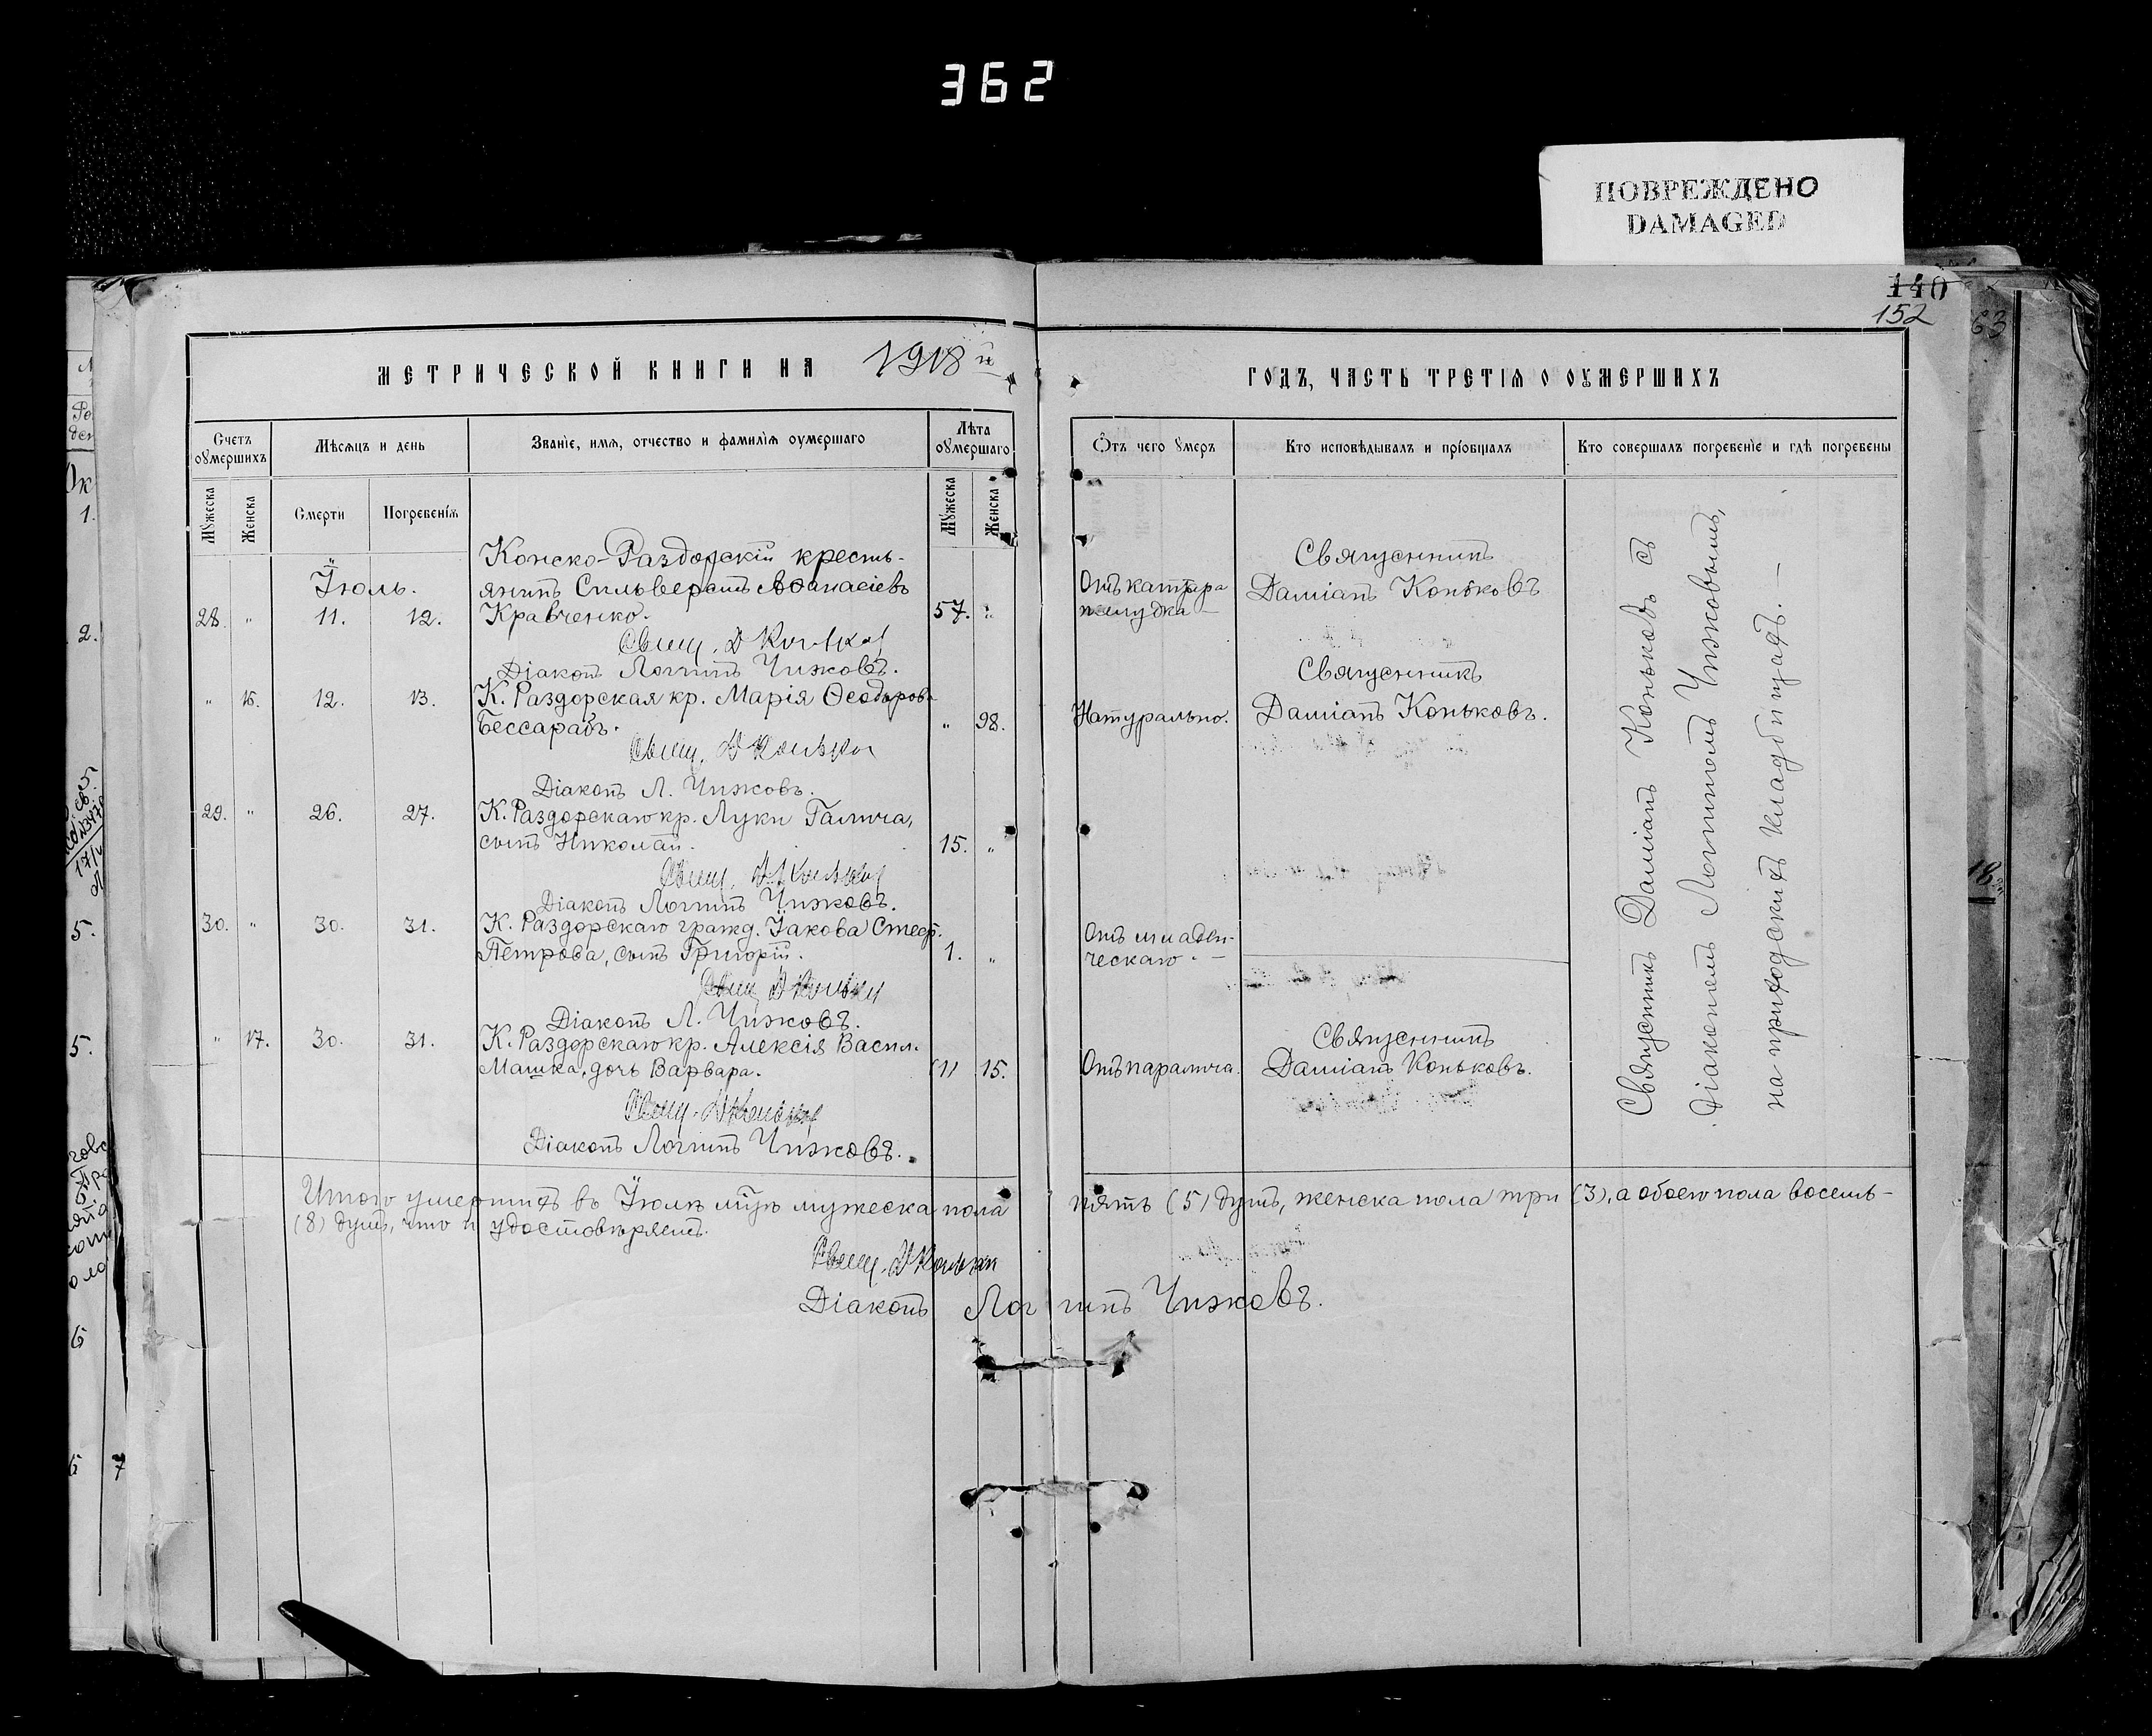 362
ПОВРЕЖДЕНО
DAMAGED
140
152
МЕТРИЧЕСКОЙ КНИГИ НА 1918 й
ГОДЪ, ЧАСТЬ ТРЕТІЯ О ОУМЕРШИХЪ
Счетъ оумершихъ
Мѣсяцъ и день
Званіе, имя, отчество и фамилія оумершаго
Лѣта оумершаго
Отъ чего умеръ
Кто исповѣдывалъ и пріобщалъ
Кто совершалъ погребеніе и гдѣ погребены
Мужеска
Женска
Смерти
Погребенія
Мужеска
Женска
Конско-Раздорскій кресть-
Священникъ
Іюль.
янинъ Сильверстъ Аѳанасіевъ
Отъ катарра
Даміанъ Коньковъ
28. " 11. 12. Кравченко. 57. "
желудка —
Свящ. Д Коньков
Діаконъ Логгинъ Чижовъ.
Священникъ
" 16. 12. 13. К. Раздорская кр. Марія Ѳеодорова
Бессарабъ. " 98. Натурально. Даміанъ Коньковъ.
Свящ. Д Коньков
Діаконъ Л. Чижовъ.
29. " 26. 27. К. Раздорскаго кр. Луки Галича,
сынъ Николай. 15. "
Свящ. Д. Коньков
Діаконъ Логгинъ Чижовъ.
30. " 30. 31. К. Раздорскаго гражд. Іакова Стеф.
Отъ младен-
Петрова, сынъ Григорій. 1. "
ческаго. —
Свящ Д Коньков
Діаконъ Л. Чижовъ.
" 17. 30. 31. К. Раздорскаго кр. Алексія Васил.
Священникъ
Машка, дочь Варвара. 15. Отъ паралича. Даміанъ Коньковъ.
Свящ. Д Коньков
Діаконъ Логгинъ Чижовъ.
Священникъ Даміанъ Коньковъ съ
діакономъ Логгиномъ Чижовымъ,
на приходскомъ кладбищѣ. —
Итого умершихъ въ Іюлѣ м-цѣ мужеска пола пять (5) душъ, женска пола три (3), а обоего пола восемь-
(8) душъ, что и удостовѣряемъ.
Свящ. Д Коньков
Діаконъ Логгинъ Чижовъ.